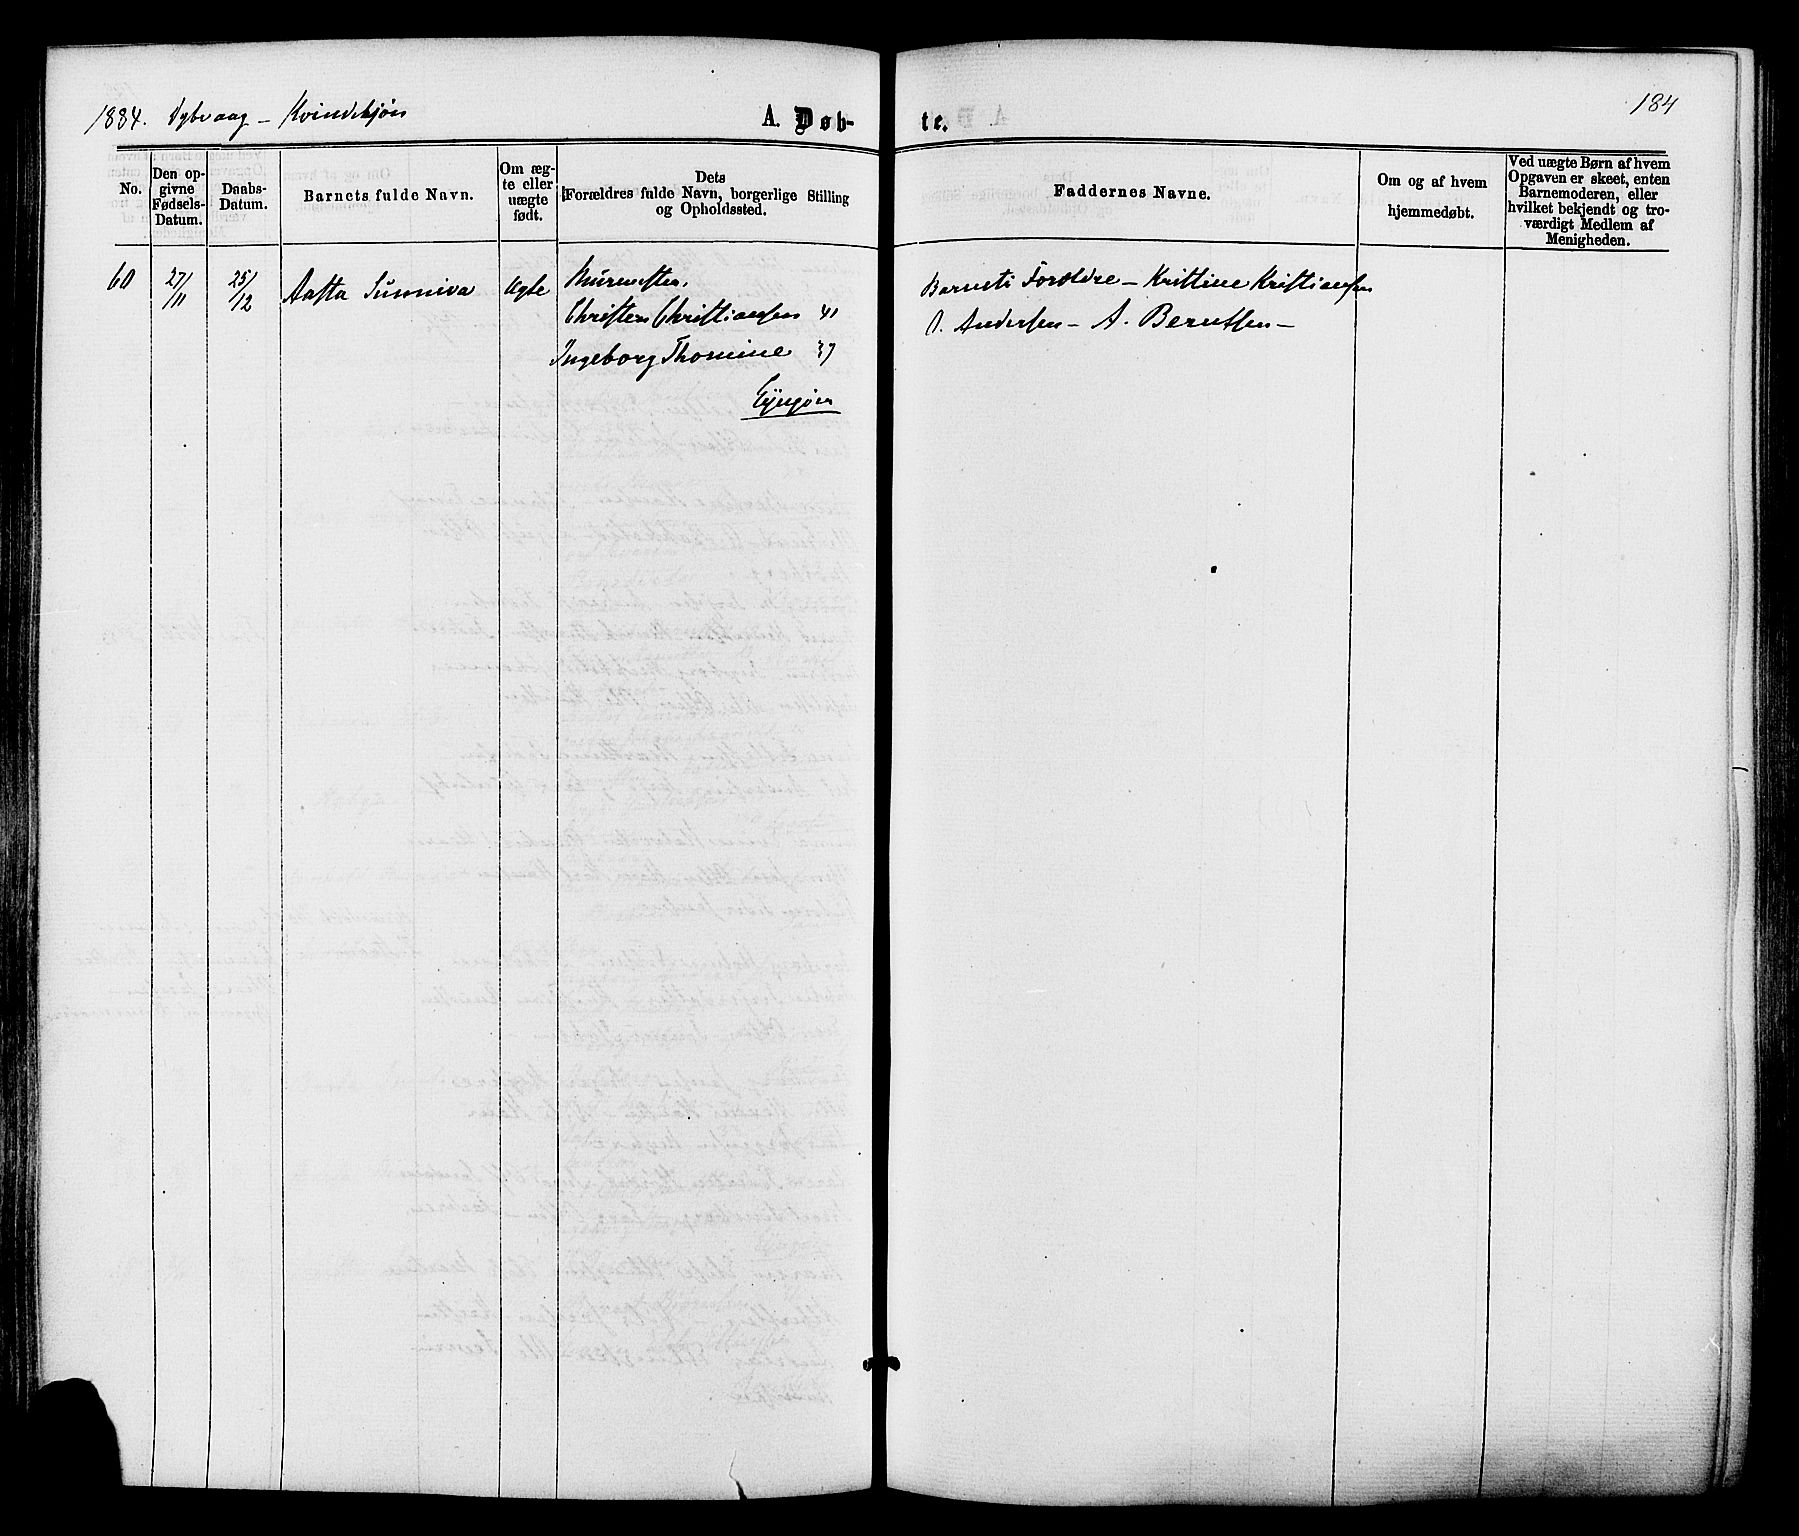 1884. Dybvaag – Kvindekjøn
A. Døb-
te.
184
No.
Den op-
givne
Fødsels-
Datum.
Daabs-
Datum.
Barnets fulde Navn.
Om æg-
te eller
uægte
født.
Dets
Forældres fulde Navn, borgerlige Stilling
og Opholdssted.
Faddernes Navne.
Om og af hvem
hjemmedøbt.
Ved uægte Børn af hvem
Opgaven er skeet, enten
Barnemoderen, eller
hvilket bekjendt og tro-
værdigt Medlem af
Menigheden.
60 27/11 25/12 Aasta Sunniva Ægte
Murmester
Christen Christiansen 41
Ingeborg Thomine 37
Barnets Forældre – Kristine Kristiansen
O. Andersen – A. Berntsen –